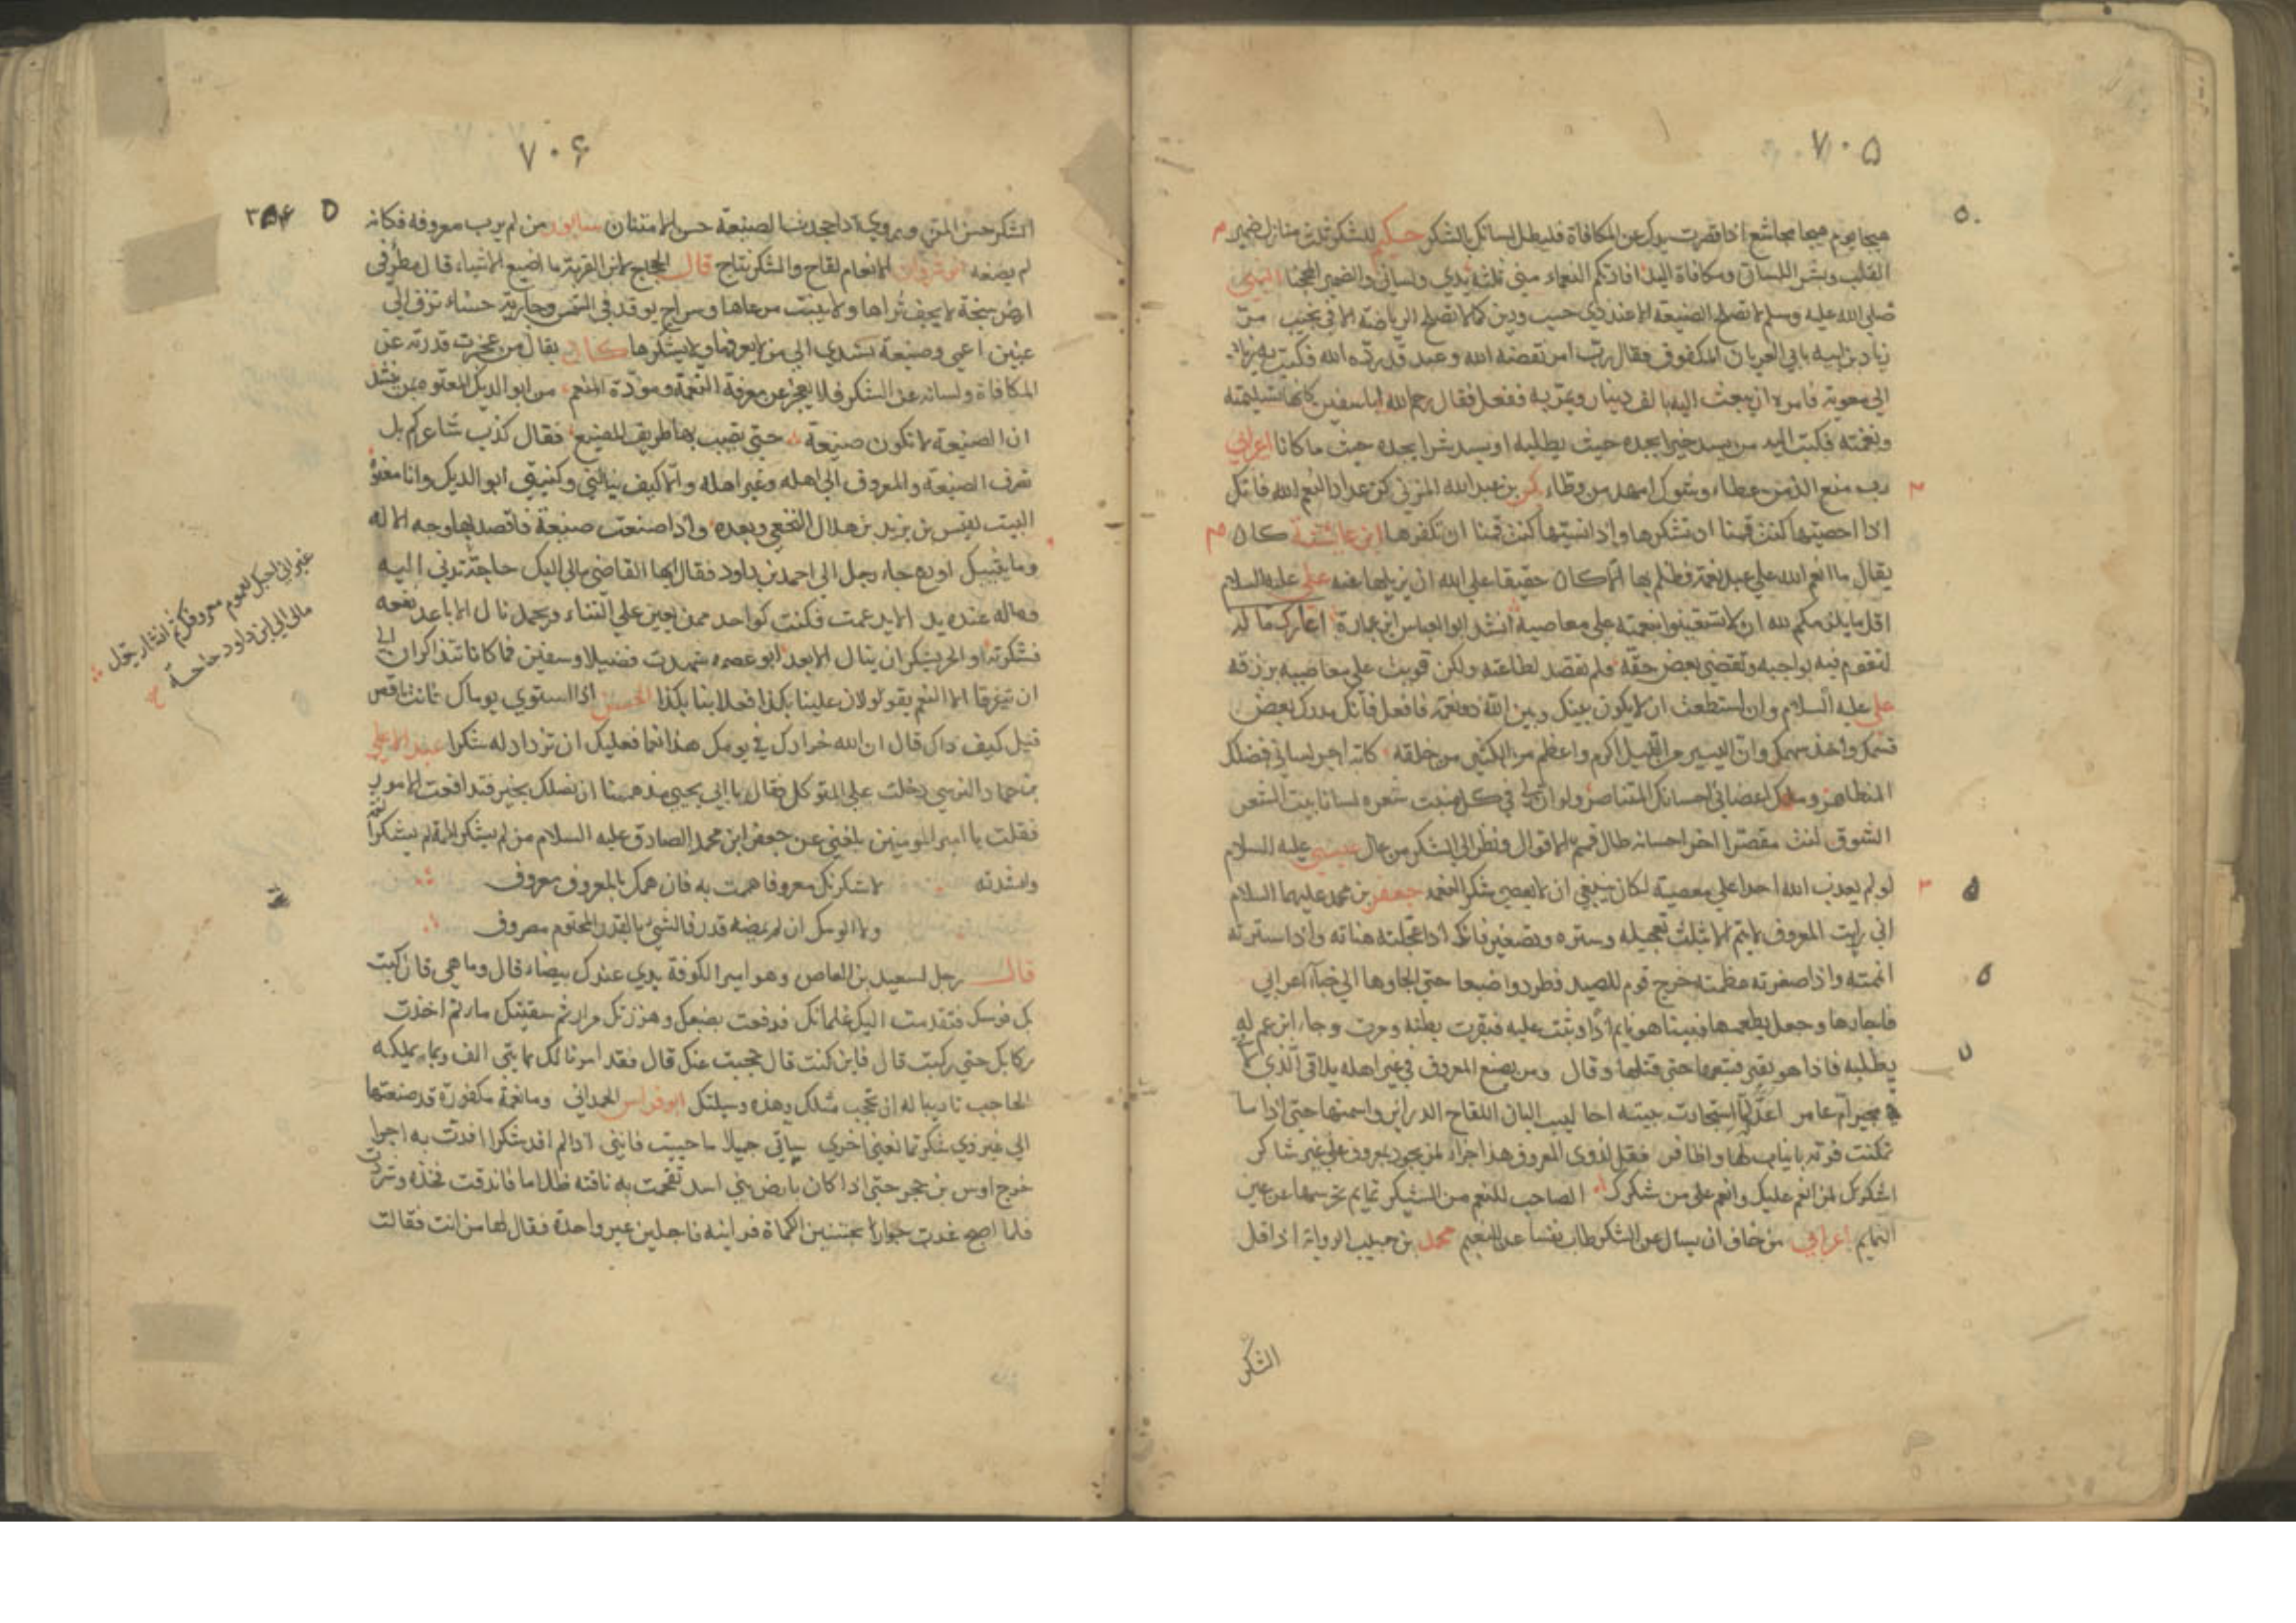 ٧٠٥
هيجا يوم هيجا مجاشع اذا قصرت يدك عن المكافاة فليطل لسانك بالشكر حكيم للشكر ثلث منازل ضمير
القلب ونشر اللسان ومكافاة اليد افادتكم النعماء مني ثلثة يدي ولساني والضمير المحجبا النبي
صلى الله عليه وسلم لا تصلح الصنيعة الا عند ذي حسب ودين كما لا تصلح الرياضة الا في نجيب مر
زياد بن ابيه بابي العريان المكفوف فقال رب امر نقضه الله وعبد قد رده الله فكتب به زياد
الي معوية فامره ان يبعث اليه بالف دينار ويمر به ففعل فقال رحم الله ابا سفين كانها تسليمته
ونغمته فكتب اليه من يسد خيرا يجده حيث يطلبه او يسد شرا يجده حيث ما كانا اعرابي
رب منع الذ من عطاء وشوك امهد من وطاء بكر بن عبد الله المزني كن عدادا لنعم الله فانك
اذا احصيتها كنت قمنا ان تشكرها واذا نسيتها كنت قمنا ان تكفرها ابن عائشة كان
يقال ما انعم الله علي عبد نعمة فظلم بها الا كان حقيقا علي الله ان يزيلها عنه علي عليه السلام
اقل ما يلزمكم لله ان لا تستعينوا بنعمته علي معاصيه انشد ابو العباس ابن عمارة اعارك ما له
لتقوم فيه بواجبه وتقضي بعض حقه فلم تقصد لطاعته ولكن قويت علي معاصيه برزقه
علي عليه السلام وان استطعت ان لا يكون بينك وبين الله ذو نعمة فافعل فانك مدرك بعض
قسمك واخذ سهمك وان اليسير من الله اكرم واعظم من الكثير من خلقه كاتب لساني فضلك
المتظاهر اعضائي احسانك المتناصر ولو ان لي في كل منبت شعره لسانا يبث الشعر
الشوق لنث مقصرا اخر احسانه طال قيم الاقوال ونظر الي الشكر من عال عيسي عليه السلام
لو لم يعذب الله احدا علي معصية لكان ينبغي ان لا يعصي شكر النعمه جعفر بن محمد عليهما السلام
اني رايت المعروف لا يتم الا بثلث تعجيله وستره وتصغيره فانك اذا عجلته هناته واذا سترته
اتممته واذا صغرته عظمته خرج قوم للصيد فطردوا ضبعا حتي الجاوها الي خباء اعرابي
فاجارها وجعل يطعمها فبينا هو نايم اذ وثبت عليه فبقرت بطنه ومرت وجاء ابن عم له
يطلبه فاذا هو بقير فتبعها حتي قتلها وقال ومن يصنع المعروف في غير اهله يلاقي الذي
مجير ام عامر اعد لها لما استجارت ببيته احاليب البان اللقاح الدراير واسمنها حتي اذا ما
تمكنت فرته بانياب لها واظافر فقل لذوي المعروف هذا جزاء لمن يجود بمعروف علي غير شاكر
اشكر لمن انعم عليك وانعم علي من شكرك الصاحب للنعم من الشكر تمايم تحرسها عن عين
التمايم اعرابي من خاف ان يسال عن الشكر طاب نفسا عن النعيم محمد بن حبيب الرواية اذا قل
الشكر
٧٠۶
الشكر حسن المن ويروي اذا جحدت الصنيعة حسن الامتنان سابور من لم يرب معروفه فكانه
لم يصنعه انوشروان الانعام لقاح والشكر نتاج قال الحجاج لابن القرية ما اضيع الاشياء قال مطر في
ارض سبخة لا يجف ثراها ولا ينبت مرعاها وسراج يوقد في الشمس وجارية حسناء تزف الي
عنين اعمي وصنيعة تسدي الي من لا يعرفها ولا يشكرها كان يقال من عجزت قدرته عن
المكافاة ولسانه عن الشكر فلا يعجز عن معرفة النعمة ومودة المنعم مر ابو الديك المعتوه بمن ينشد
ان الصنيعة لا تكون صنيعة حتي تصيب بها طريق المصنع فقال كذب شاعركم بل
شرف الصنيعة والمعروف الي اهله وغير اهله والا كيف ينالني وكنيتي ابو الديك وانا معتوه
البيت لقيس بن يزيد بن هلال النخعي وبعده واذا صنعت صنيعة فاقصد بها وجه الاله
جاء رجل الي احمد بن داود فقال ايها القاضي مالي اليك حاجة تدني اليه
وماله عنده يد الا يد عمت فكنت كواحد ممن يعين علي الثناء ويحمد نال الاباعد نفعه
فشكرته او الحر يشكر ان ينال الابعد ابو عصمه شهدت فضيلا وسفين فما كانا تذاكران الي
ان تفرقا الا النعم يقولولان علينا بكذا فعلا بنا بكذا الحسن اذا استوي يوماك فانت ناقص
قيل كيف ذاك قال ان الله خرادك في يومك هذا نعما فعليك ان تزداد له شكرا عبد الاعلي
بن حماد النرسي دخلت علي المتوكل فقال يا ابا يحيي قد هممنا ان نصلك بخير فتدافعت الامور
فقلت يا امير المومنين بلغني عن جعفر ابن محمد الصادق عليه السلام من لم يشكر الهمة لم يشكر النعمة
وانشدته لاشكرنك معروفا هممت به فان همك بالمعروف معروف
ولا الومك ان لم يمضه قدر فالشيء بالقدر المحتوم مصروف
قال رجل لسعيد بن العاص وهو امير الكوفة يدي عندك بيضاء قال وما هي قال كبت
بك فرسك فتقدمت اليك غلمانك فرفعت بضبعك وهززتك مرارا ثم سقيتك ماء ثم اخذت
ركابك حتي ركبت قال فاين كنت قال حجبت عنك قال فقد امرنا لك بمايتي الف وبما يملكه
الحاجب تاديبا له ان يحجب مثلك وهذه وسيلتك ابو فراس الحمداني وما نعمة مكفورة قد صنعتها
الي غير ذي شكر تمانعني اخري ساتي جميلا ما حييت فانني اذا لم افد شكرا افدت به اجرا
خرج اوس بن حجر حتي اذا كان بارض بني اسد تقحمت به ناقته ظلاما فاندقت فخذه وشردت
فلما اصبح غدت جوار يجتنين الكماة فراينه فاجلين غير واحدة فقال لها من انت فقالت
٣٥۴
مالي الي ابن داود حاجة